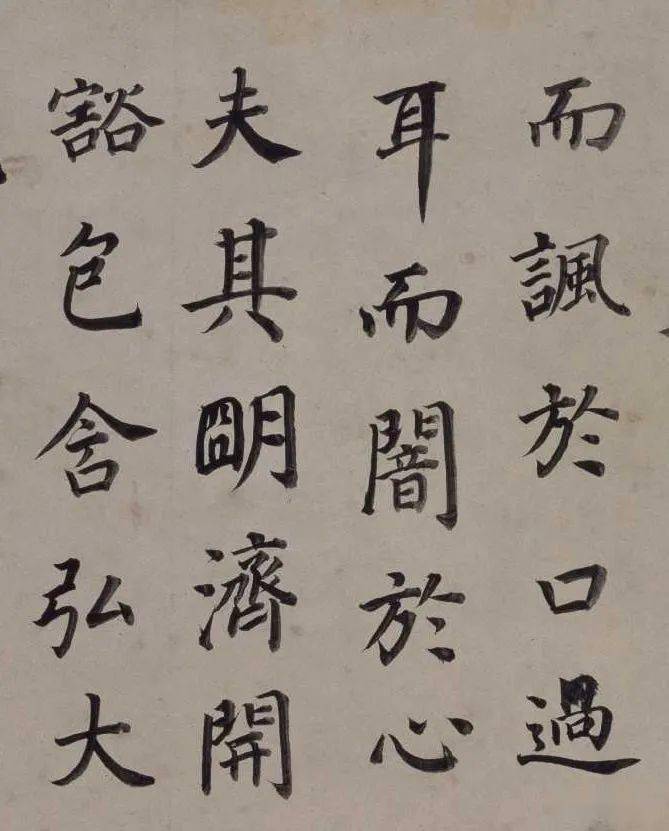 而諷於口過
耳而闇於心
夫其朙濟開
豁包含弘大